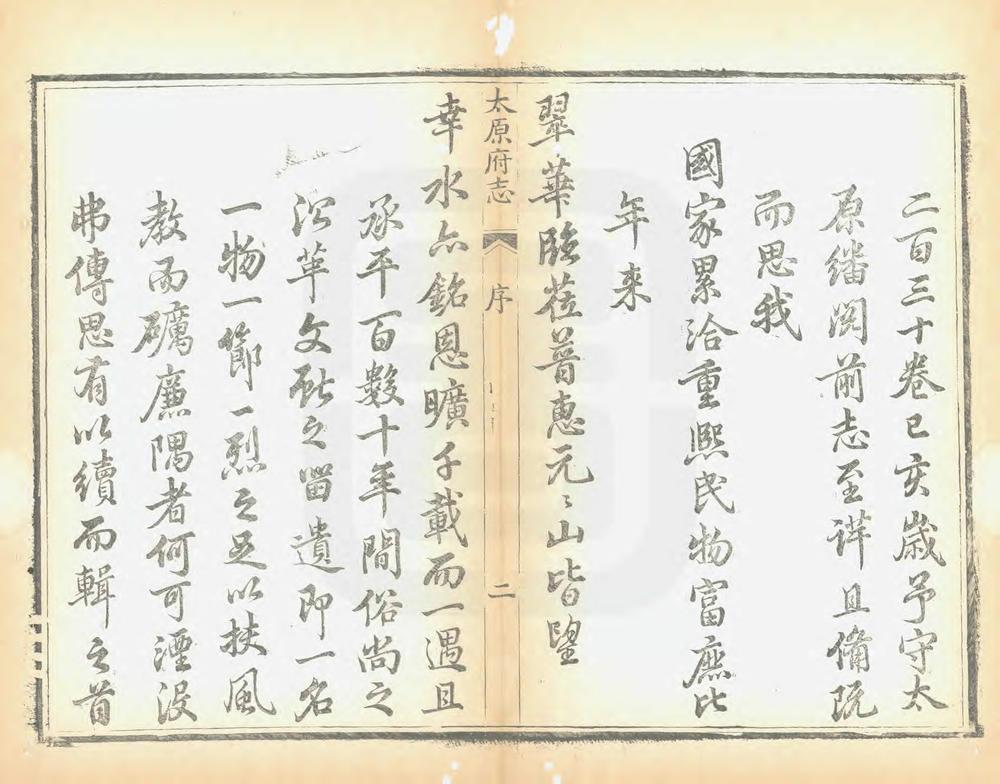 二百三十卷已亥歲予守太
原繙閱前志至詳且備既
而思我
國家累洽重熙民物富庶比
年來
翠華臨莅普惠元〻山皆望
太原府志
序
二
幸水亦銘恩曠千載而一遇且
承平百數十年間俗尚之
沿革文獻之留遺即一名
一物一節一烈之足以扶風
教而礪廉隅者何可湮沒
弗傳思有以續而輯之首